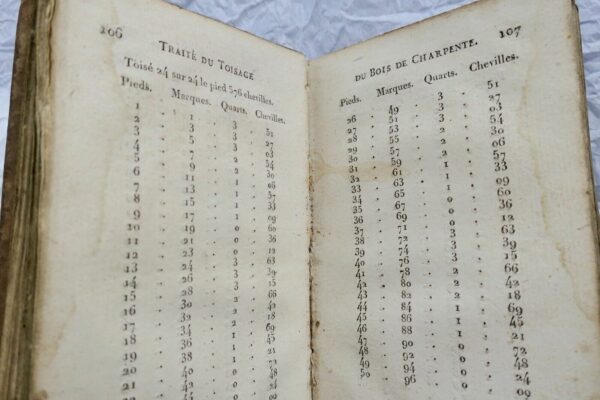 106
TRAITÉ DU TOISAGE
Toisé 24 sur 24 le pied 576 chevilles.
Pieds. Marques. Quarts. Chevilles.
1 . 1 . 3 . 51
2 . 3 . 3 . 27
3 . 5 . 3 . 03
4 . 7 . 2 . 54
5 . 9 . 2 . 30
6 . 11 . 2 . 06
7 . 13 . 1 . 57
8 . 15 . 1 . 33
9 . 17 . 1 . 09
10 . 19 . 0 . 60
11 . 21 . 0 . 36
12 . 23 . 0 . 12
13 . 24 . 3 . 63
14 . 26 . 3 . 39
15 . 28 . 3 . 15
16 . 30 . 2 . 66
17 . 32 . 2 . 42
18 . 34 . 2 . 18
19 . 36 . 1 . 69
20 . 38 . 1 . 45
21 . 40 . 1 . 21
107
DU BOIS DE CHARPENTE.
Pieds. Marques. Quarts. Chevilles.
26 . 49 . 3 . 51
27 . 51 . 3 . 27
28 . 53 . 3 . 03
29 . 55 . 2 . 54
30 . 57 . 2 . 30
31 . 59 . 2 . 06
32 . 61 . 1 . 57
33 . 63 . 1 . 33
34 . 65 . 1 . 09
35 . 67 . 0 . 60
36 . 69 . 0 . 36
37 . 71 . 0 . 12
38 . 72 . 3 . 63
39 . 74 . 3 . 39
40 . 76 . 3 . 15
41 . 78 . 2 . 66
42 . 80 . 2 . 42
43 . 82 . 2 . 18
44 . 84 . 1 . 69
45 . 86 . 1 . 45